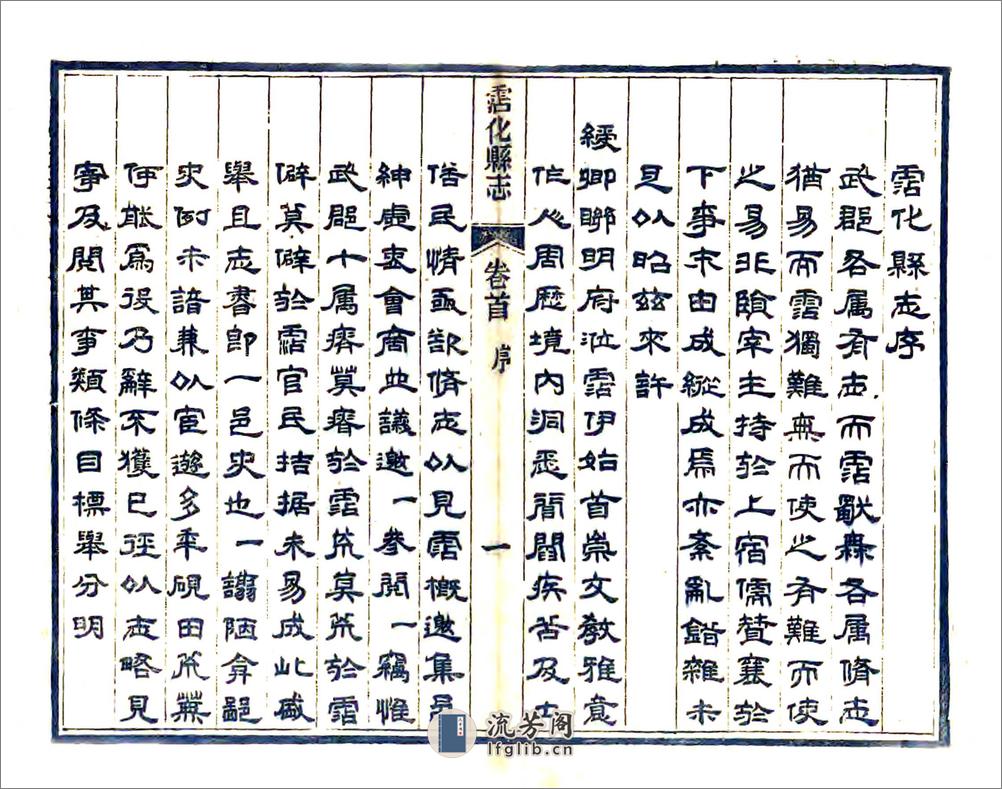 霑化縣志序
武郡各属有志而霑獨無各属脩志
猶易而霑獨難無而使之有難而使
之易非隂宰主持於上宿儒賛襄於
下事末由成縱成焉亦紊亂錯雜未
旦以昭兹來許
綬卿聯明府涖霑伊始首崇文教雅意
作人周歷境内洞悉閭閻疾苦及士
俗民情亟欲脩志以見霑概邀集邑
紳連壺會商並議邀一叅閲一竊惟
武郡十属瘠莫瘠於霑荒莫荒於霑
僻莫僻於霑官民拮据未易成此盛
舉且志書即一邑史也一譾陋弇鄙
史例未諳兼以宦遊多年硯田荒蕪
何能爲役乃辭不獲已徑以志略見
寄及閲其事類條目標舉分明
霑化縣志
卷首
序
一
流芳阁
lfglib.cn